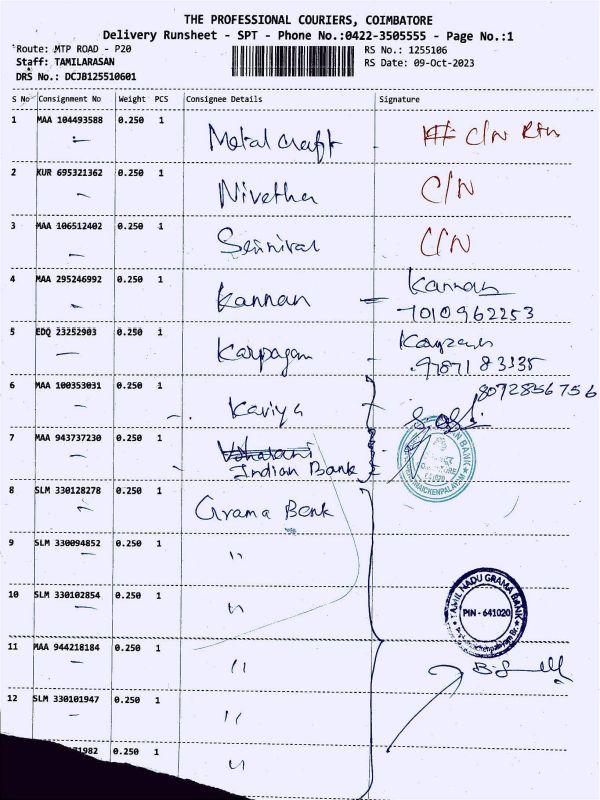 THE PROFESSIONAL COURIERS, COIMBATORE
Delivery Runsheet - SPT - Phone No.:0422-3505555 - Page No.:1
Route: MTP ROAD - P20 RS No.: 1255106
Staff: TAMILARASAN RS Date: 09-Oct-2023
DRS No.: DCJB125510601
S No Consignment No Weight PCS Consignee Details Signature
1 MAA 104493588 0.250 1 Metal craft C/N Rtn
2 KUR 695321362 0.250 1 Nivetha C/N
3 MAA 106512402 0.250 1 C/N
4 MAA 295246992 0.250 1 Kannan Kannan
7010962253
5 EDQ 23252903 0.250 1 Karpagam
6 MAA 100353031 0.250 1 Kaviya 8072856756
7 MAA 943737230 0.250 1 Indian Bank
8 SLM 330128278 0.250 1 Grama Bank
9 SLM 330094852 0.250 1 "
10 SLM 330102854 0.250 1 "
TAMIL NADU GRAMA BANK
PIN - 641020
11 MAA 944218184 0.250 1 "
12 SLM 330101947 0.250 1 "
1982 0.250 1 "